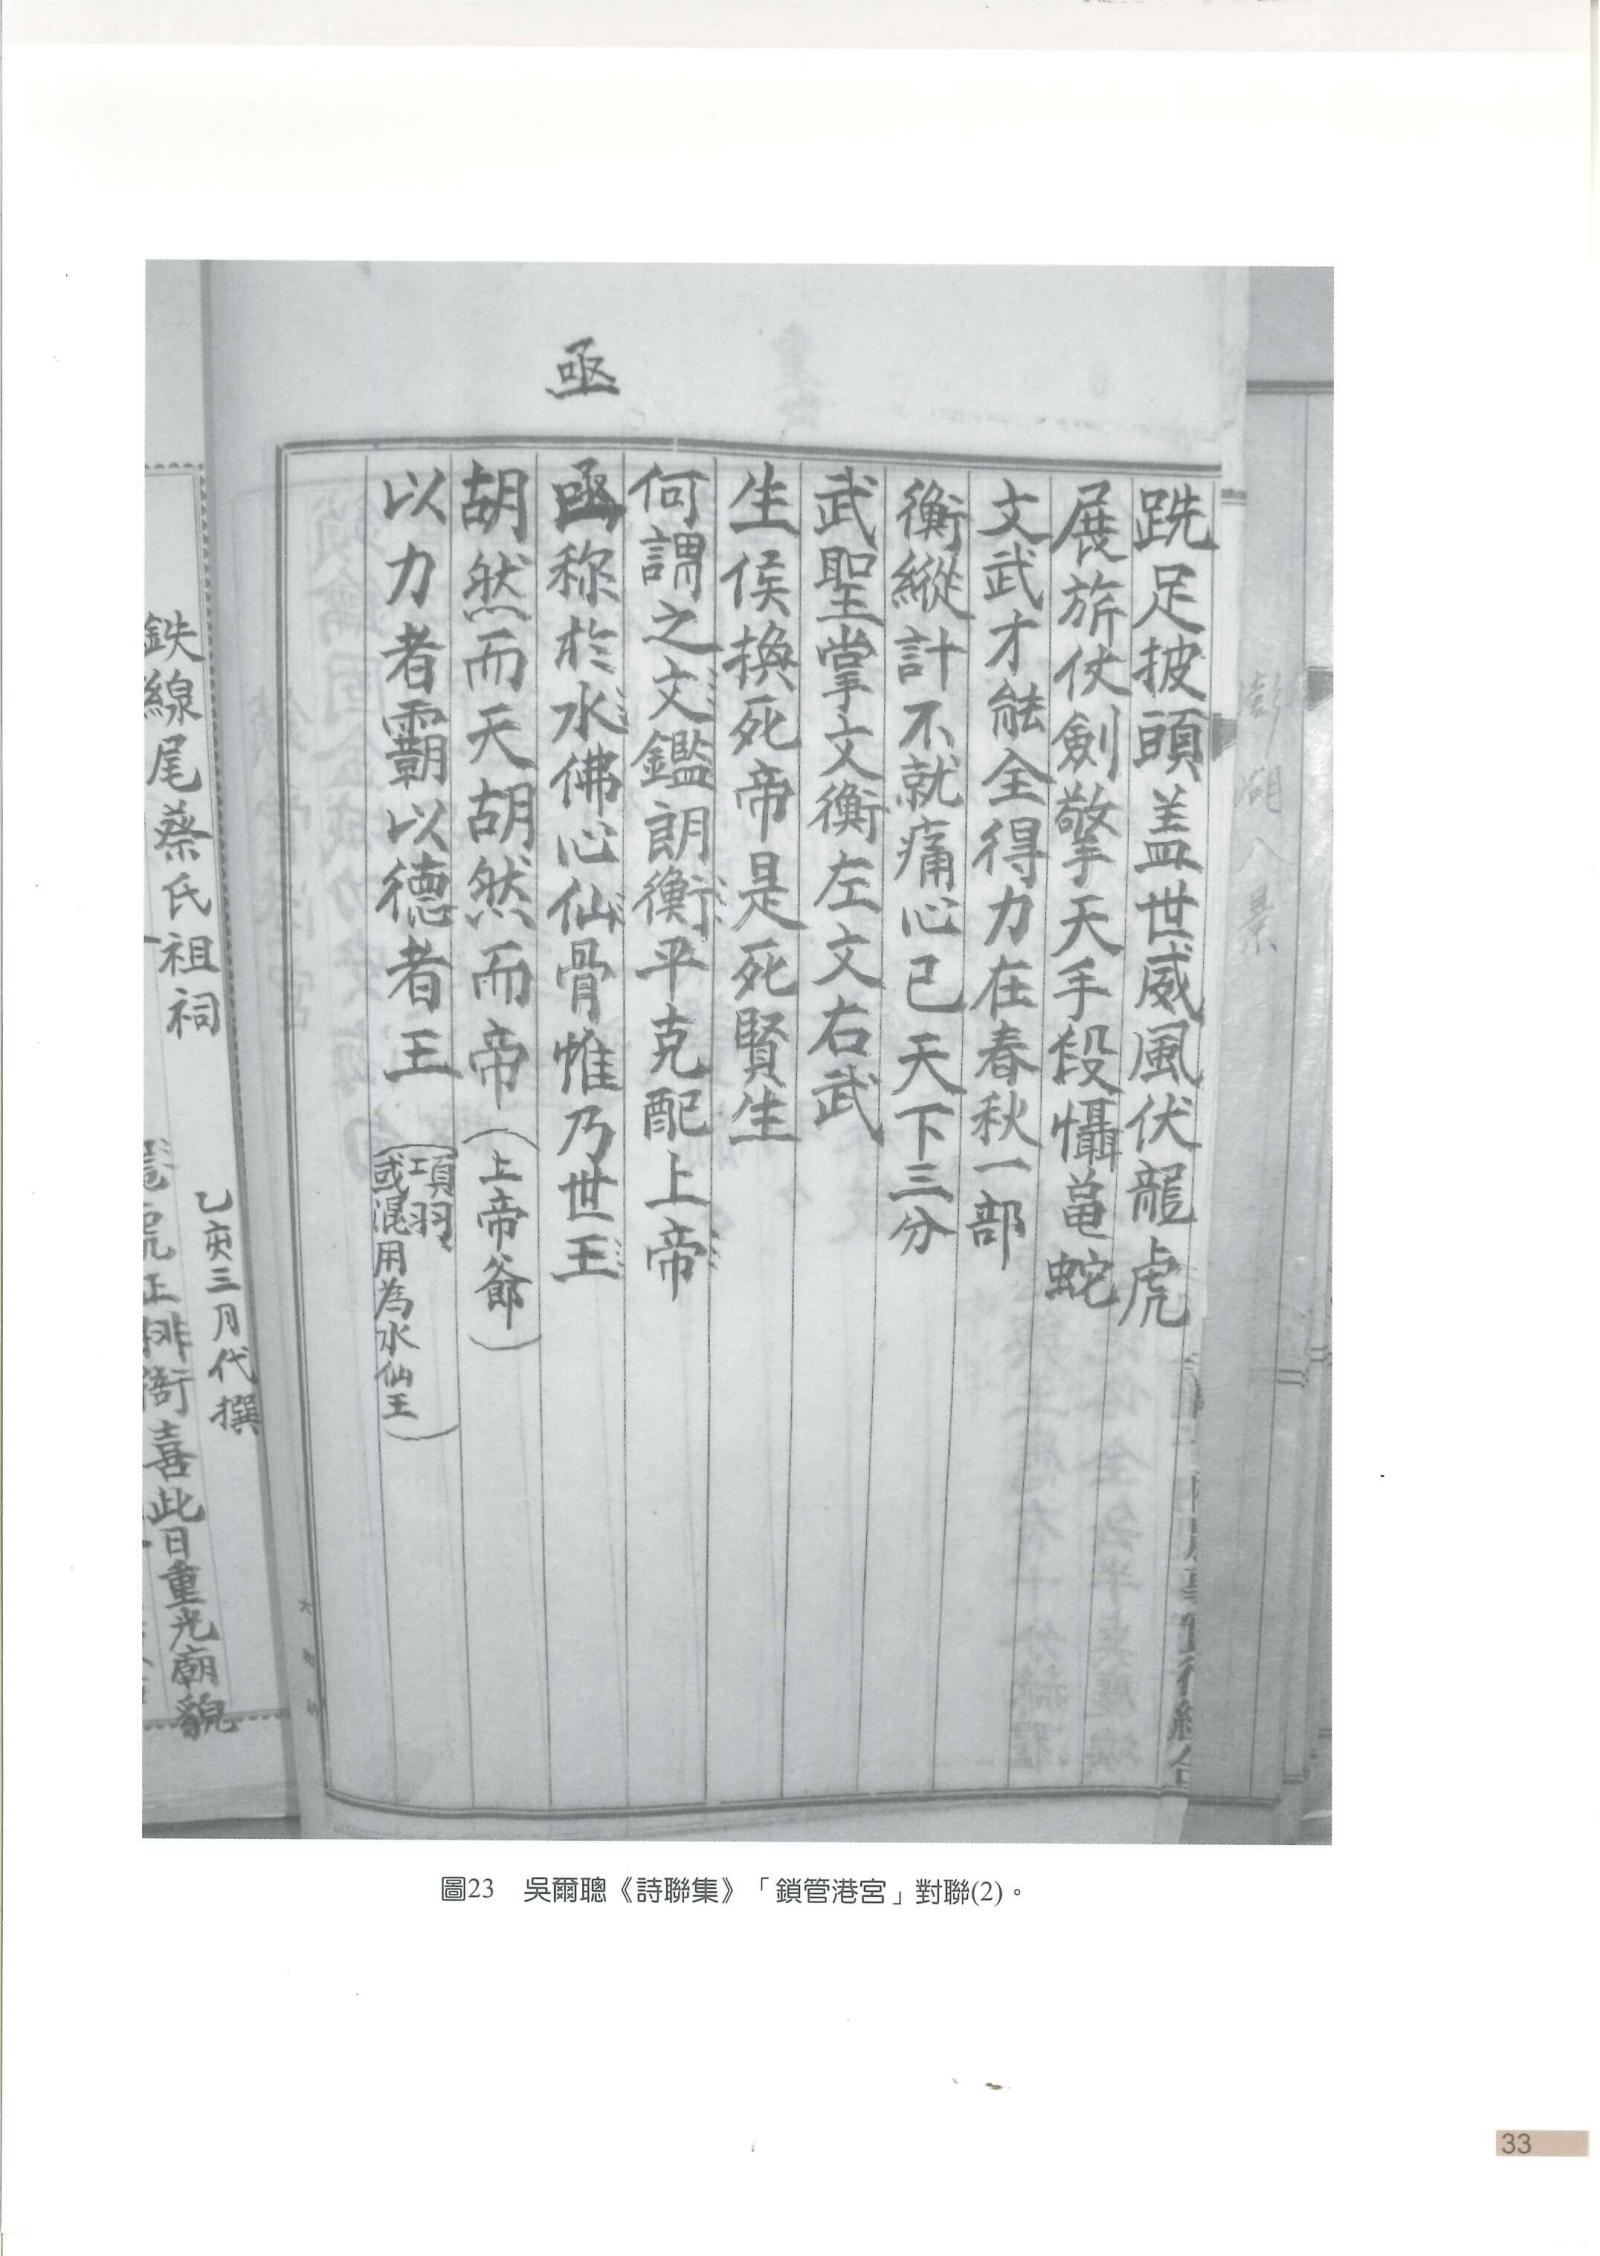 澎湖八景
跣足披頭盖世威風伏龍虎
展旂仗劍擎天手段懾黾蛇
文武才能全得力在春秋一部
衡縱計不就痛心已天下三分
武聖掌文衡左文右武
生侯換死帝是死賢生
何謂之文鑑朗衡平克配上帝
亟
亟稱於水佛心仙骨惟乃世王
胡然而天胡然而帝(上帝爺)
以力者霸以德者王(項羽、
或混用為水仙王)
鉄線尾蔡氏祖祠
乙亥三月代撰
喜此日重光廟貌
圖23 吳爾聰《詩聯集》「鎖管港宮」對聯(2)。
33